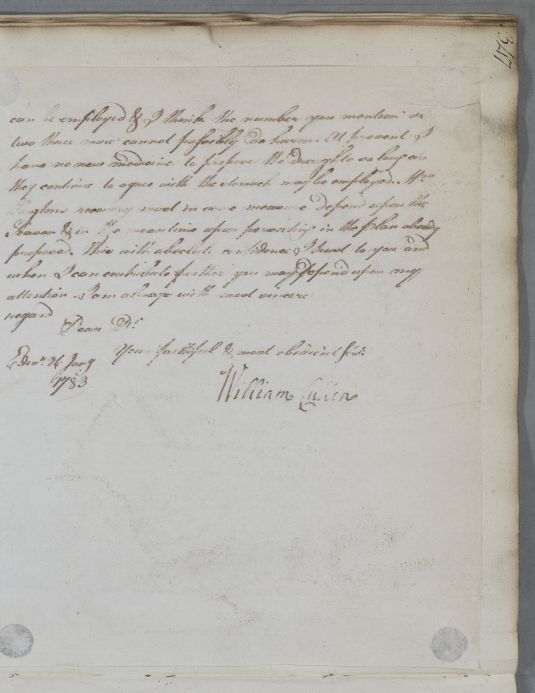 347
can be employed & I think the number you mention or
two three more cannot possibly do harm. At present I
have no new medicine to propose the draughts as long as
they continue to agree with the stomach may be employed. Mrs
recovery must in some measure depend upon the
Season & in the mean time upon persisting in the plan already
proposed. This with absolute confidence I trust to you and
when I can contribute further you may depend upon my
attention. I am always with most sincere
regard
Dear Dr.
Your faithful & most obedient Servt.
Edinr. 31 Jany
1783
William Cullen